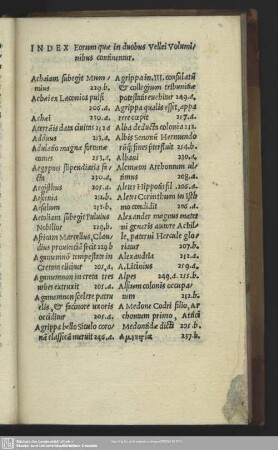 INDEX Eorum quæ in duobus Vellei Volumi/
nibus continentur.
Achaiam subegit Mum/
mius 229.b.
Achei ex Laconica pulsi
206.a.
Achei 230.a.
Acerranis data ciuitas
Adduus 253.a.
Adulatio magnæ fortunæ
comes 253.a.
Aegyptus stipendiaria fa/
cta 250.a.
Aegisthus 205.a.
Aesernia 212.b.
Aefulum 212.b.
Aetoliam subegit Fuluius
Nobilior 229.b.
Africam Marcellus, Clau/
dius prouinciã fecit 229.b
Agamemnõ tempestate in
Cretem eiicitur 205.a.
Agamemnon in creta tres
vrbes extruxit 205.a.
Agamemnon scelere patru
elis, & facinore vxoris
occiditur 205.a.
Agrippa bello Siculo coro/
nã classicã meruit 248.a.
Agrippa in .III. consulatũ
& collegium tribunitiæ
potestatis euehitur 249.a.
Agrippa qualis esset, appa
rere cœpit 217.a.
Alba deducta colonia
Albis Senonũ Hermundo/
rũq; fines præfluit 254.b.
Albani 230.a.
Alcmeon Archonum ul/
timus 208.a.
Aletes Hippotis fil. 206.a.
Aletes Corinthum in Isth
mo condidit 206.a.
Alexander magnus mater/
ni generis autore Achil/
le, paterni Hercule glo/
riatur 207.b.
Alexandria 212.a.
A. Licinius 259.a.
Alpes 249.a. 255.b.
Alsium colonis occupa/
tum 212.b.
A Medone Codri filio, Ar
chonum primo, Attici
Medontidæ dicti 205.b.
257.b.